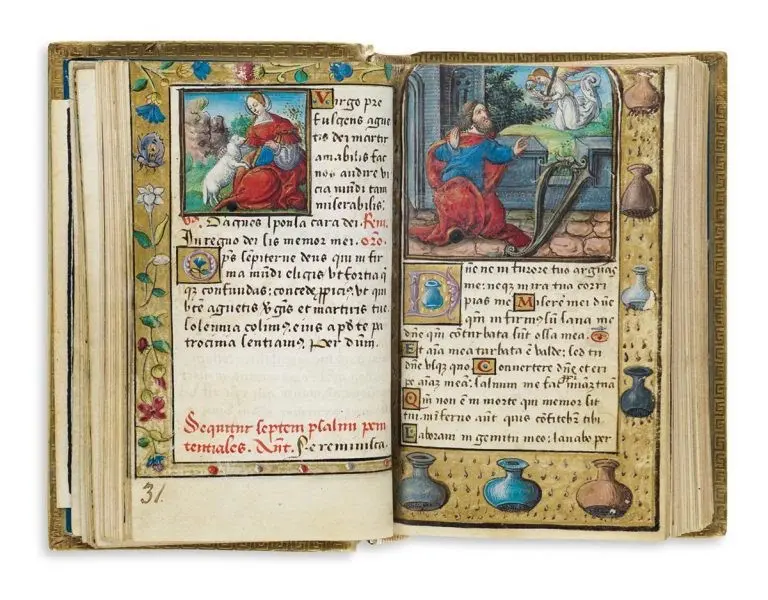 Virgo pre
fulgens agne
tis dei martir
amabilis fac
nos audire vi
cia mundi tam
miserabilis:
D agnes sponsa cara dei. Rem.
In regno dei sis memor mei. oro.
ps sempiterne deus qui infir
ma mūdi eligis ut fortia q
q̄z confundas: concede p̄pici9. ut qui
btē agnetis v̄gīs et martiris tue
solennia colim9, ei9 apd te pa
trocinia sentiam9. Per dūm.
Sequitur septem psalmi peni
tentiales. Ant. Ne reminisca.
31.
Dne ne in furore tuo arguas
me: neqz in ira tua corri
pias me Miserere mei dne
qm̄ infirm9 sum sana me
dne qm̄ cōturbata sūt ossa mea.
Et aīa mea turbata ē valde: sed tu
dne usqz quo. Convertere dne et eri
pe aīaz meā: salvum me fac pp̄ mīaz tuā
Qm̄ non ē in morte qui memor sit
tui: in inferno aūt quis cōfitebit̄ tibi
Laboravi in gemitu meo: lavabo per